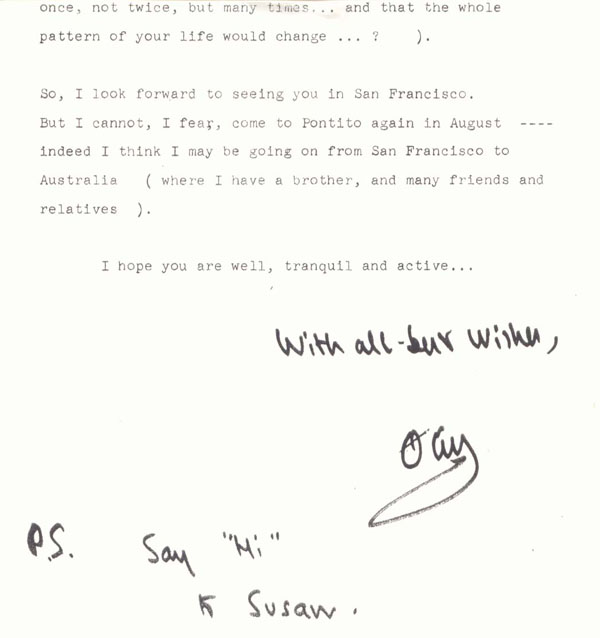 once, not twice, but many times... and that the whole
pattern of your life would change ... ? ).
So, I look forward to seeing you in San Francisco.
But I cannot, I fear, come to Pontito again in August ----
indeed I think I may be going on from San Francisco to
Australia ( where I have a brother, and many friends and
relatives ).
I hope you are well, tranquil and active...
With all best wishes,
P.S. Say "Hi"
to Susan.